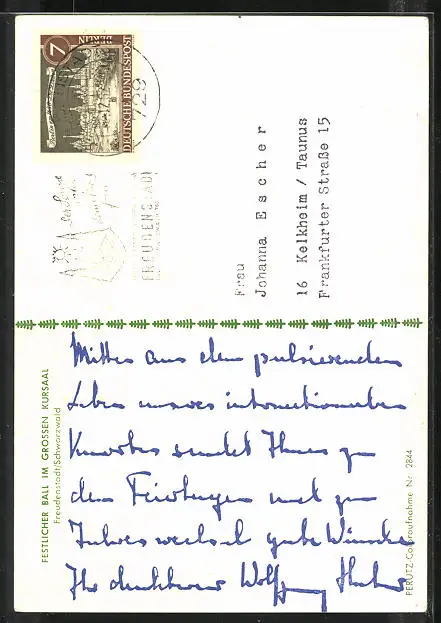 7
DEUTSCHE BUNDESPOST
BERLIN
729
FREUDENSTADT
Frau
Johanna Escher
16 Kelkheim / Taunus
Frankfurter Straße 15
FESTLICHER BALL IM GROSSEN KURSAAL
Freudenstadt/Schwarzwald
Mitten aus dem pulsierenden
Leben unseres internationalen
Kurortes sendet Ihnen zu
den Feiertagen und zum
Jahreswechsel gute Wünsche
Ihr dankbarer Wolfgang
PERUTZ-Coloraufnahme Nr. 2844